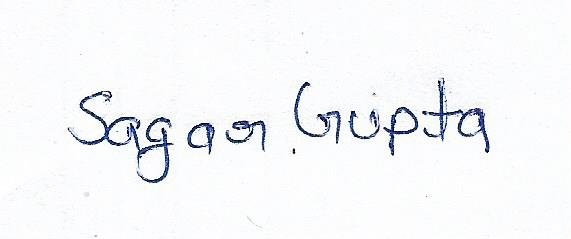 Sagar Gupta